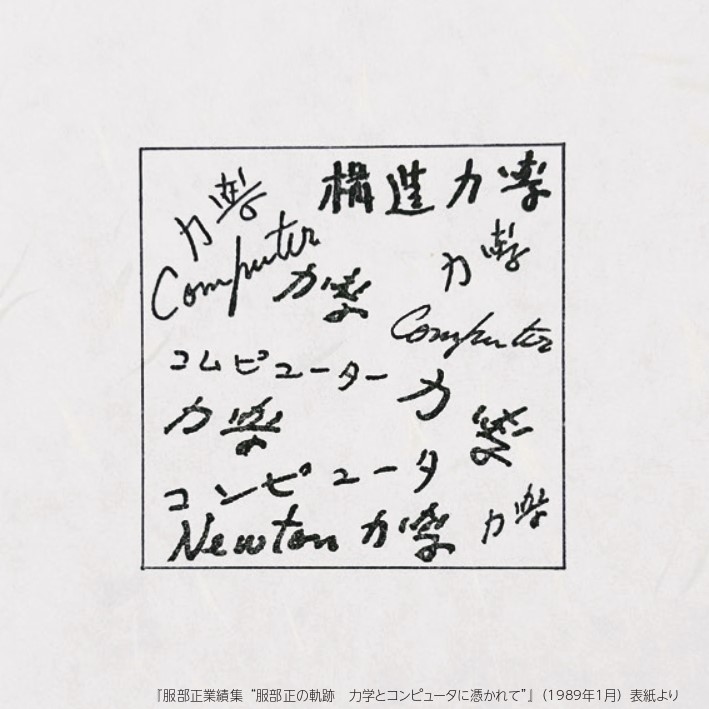 力学
構造力学
Computer
力学
力学
Computer
コムピューター
力学
力学
コンピュータ
Newton 力学
力学
『服部正業績集 “服部正の軌跡 力学とコンピュータに憑かれて”』(1989年1月) 表紙より